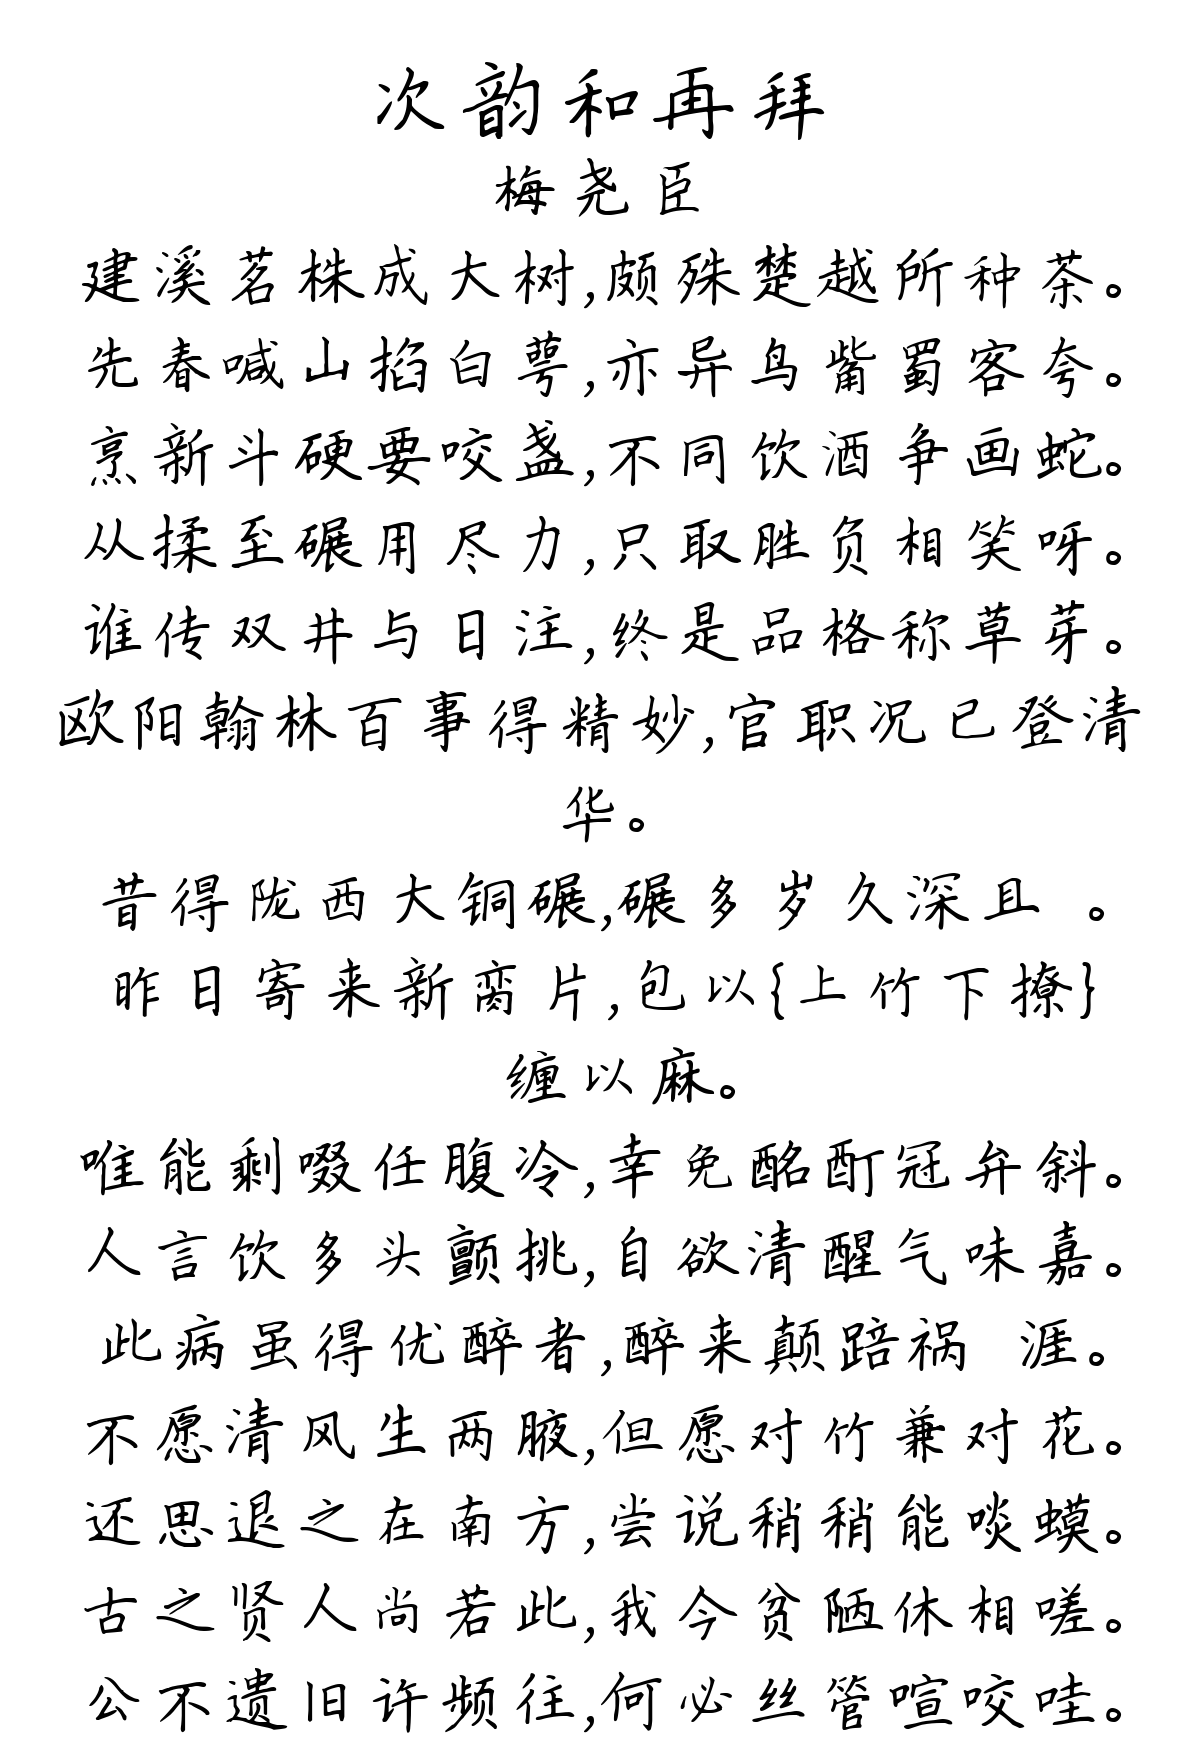 次韵和再拜
梅尧臣
建溪茗株成大树,颇殊楚越所种茶。
先春喊山掐白萼,亦异鸟觜蜀客夸。
烹新斗硬要咬盏,不同饮酒争画蛇。
从揉至碾用尽力,只取胜负相笑呀。
谁传双井与日注,终是品格称草芽。
欧阳翰林百事得精妙,官职况已登清
华。
昔得陇西大铜碾,碾多岁久深且 。
昨日寄来新脔片,包以{上竹下撩}
缠以麻。
唯能剩啜任腹冷,幸免酩酊冠弁斜。
人言饮多头颤挑,自欲清醒气味嘉。
此病虽得优醉者,醉来颠踣祸 涯。
不愿清风生两腋,但愿对竹兼对花。
还思退之在南方,尝说稍稍能啖蟆。
古之贤人尚若此,我今贫陋休相嗟。
公不遗旧许频往,何必丝管喧咬哇。